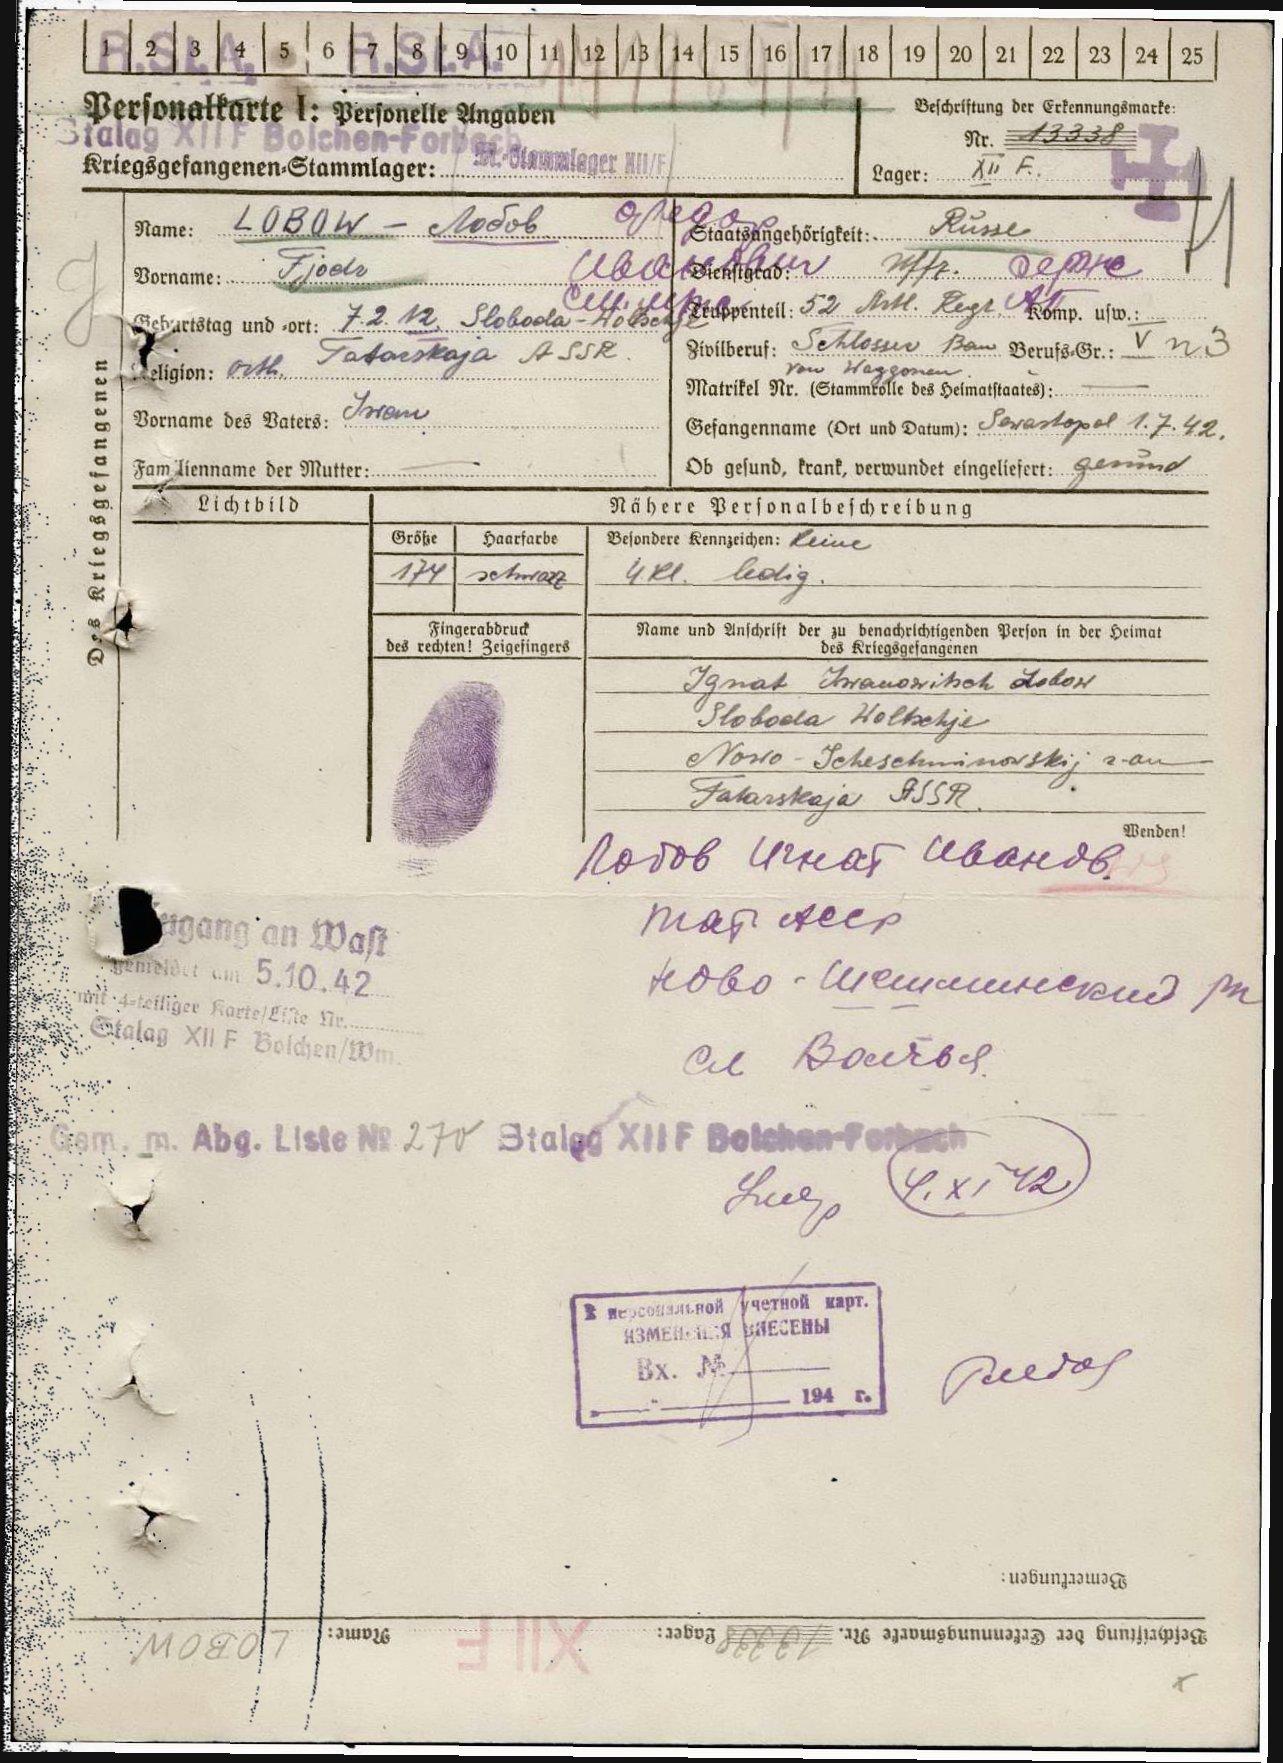 1 2 3 4 5 6 7 8 9 10 11 12 13 14 15 16 17 18 19 20 21 22 23 24 25
R.St.A. R.St.A.
Personalkarte I: Personelle Angaben
Stalag XII F Bolchen-Forbach
Kriegsgefangenen-Stammlager: M.-Stammlager XII/F
Beschriftung der Erkennungsmarke:
Nr. 13338
Lager: XII F.
Des Kriegsgefangenen
Name: LOBOW - Лобов
Vorname: Fjodr
Федор
Иванович
Geburtstag und -ort: 7.2.12. Sloboda-Woltschje
Tatarskaja ASSR.
Religion: orth.
Vorname des Vaters: Iwan
Familienname der Mutter: —
Staatsangehörigkeit: Russe
Dienstgrad: Uffz. серж
Truppenteil: 52 Artl. Regt. Komp. usw.:
Zivilberuf: Schlosser Bau Berufs-Gr.: V n3
von Waggonen.
Matrikel Nr. (Stammrolle des Heimatstaates): —
Gefangennahme (Ort und Datum): Sewastopol 1.7.42.
Ob gesund, krank, verwundet eingeliefert: gesund
Lichtbild
Nähere Personalbeschreibung
Größe Haarfarbe
174 schwarz
Besondere Kennzeichen: Keine
4 Kl. ledig.
Fingerabdruck
des rechten! Zeigefingers
Name und Anschrift der zu benachrichtigenden Person in der Heimat
des Kriegsgefangenen
Ignat Iwanowitsch Lobow
Sloboda Woltschje
Nowo-Scheschminowskij r-on
Tatarskaja ASSR.
Wenden!
Лобов Игнат Иванов.
тат АССР
Ново-Шешминский рн
сл Волчья.
Zugang an Wast
gemeldet am 5.10.42
mit 4-teiliger Karte/Liste Nr.
Stalag XII F Bolchen/Wm.
Gem. m. Abg. Liste № 270 Stalag XII F Bolchen-Forbach
4.XI 42
В персональной учетной карт.
ИЗМЕНЕНИЯ ВНЕСЕНЫ
Вх. №
194 г.
Bemerkungen:
Beschriftung der Erkennungsmarke Nr. 13338 Lager: XII F Name: LOBOW